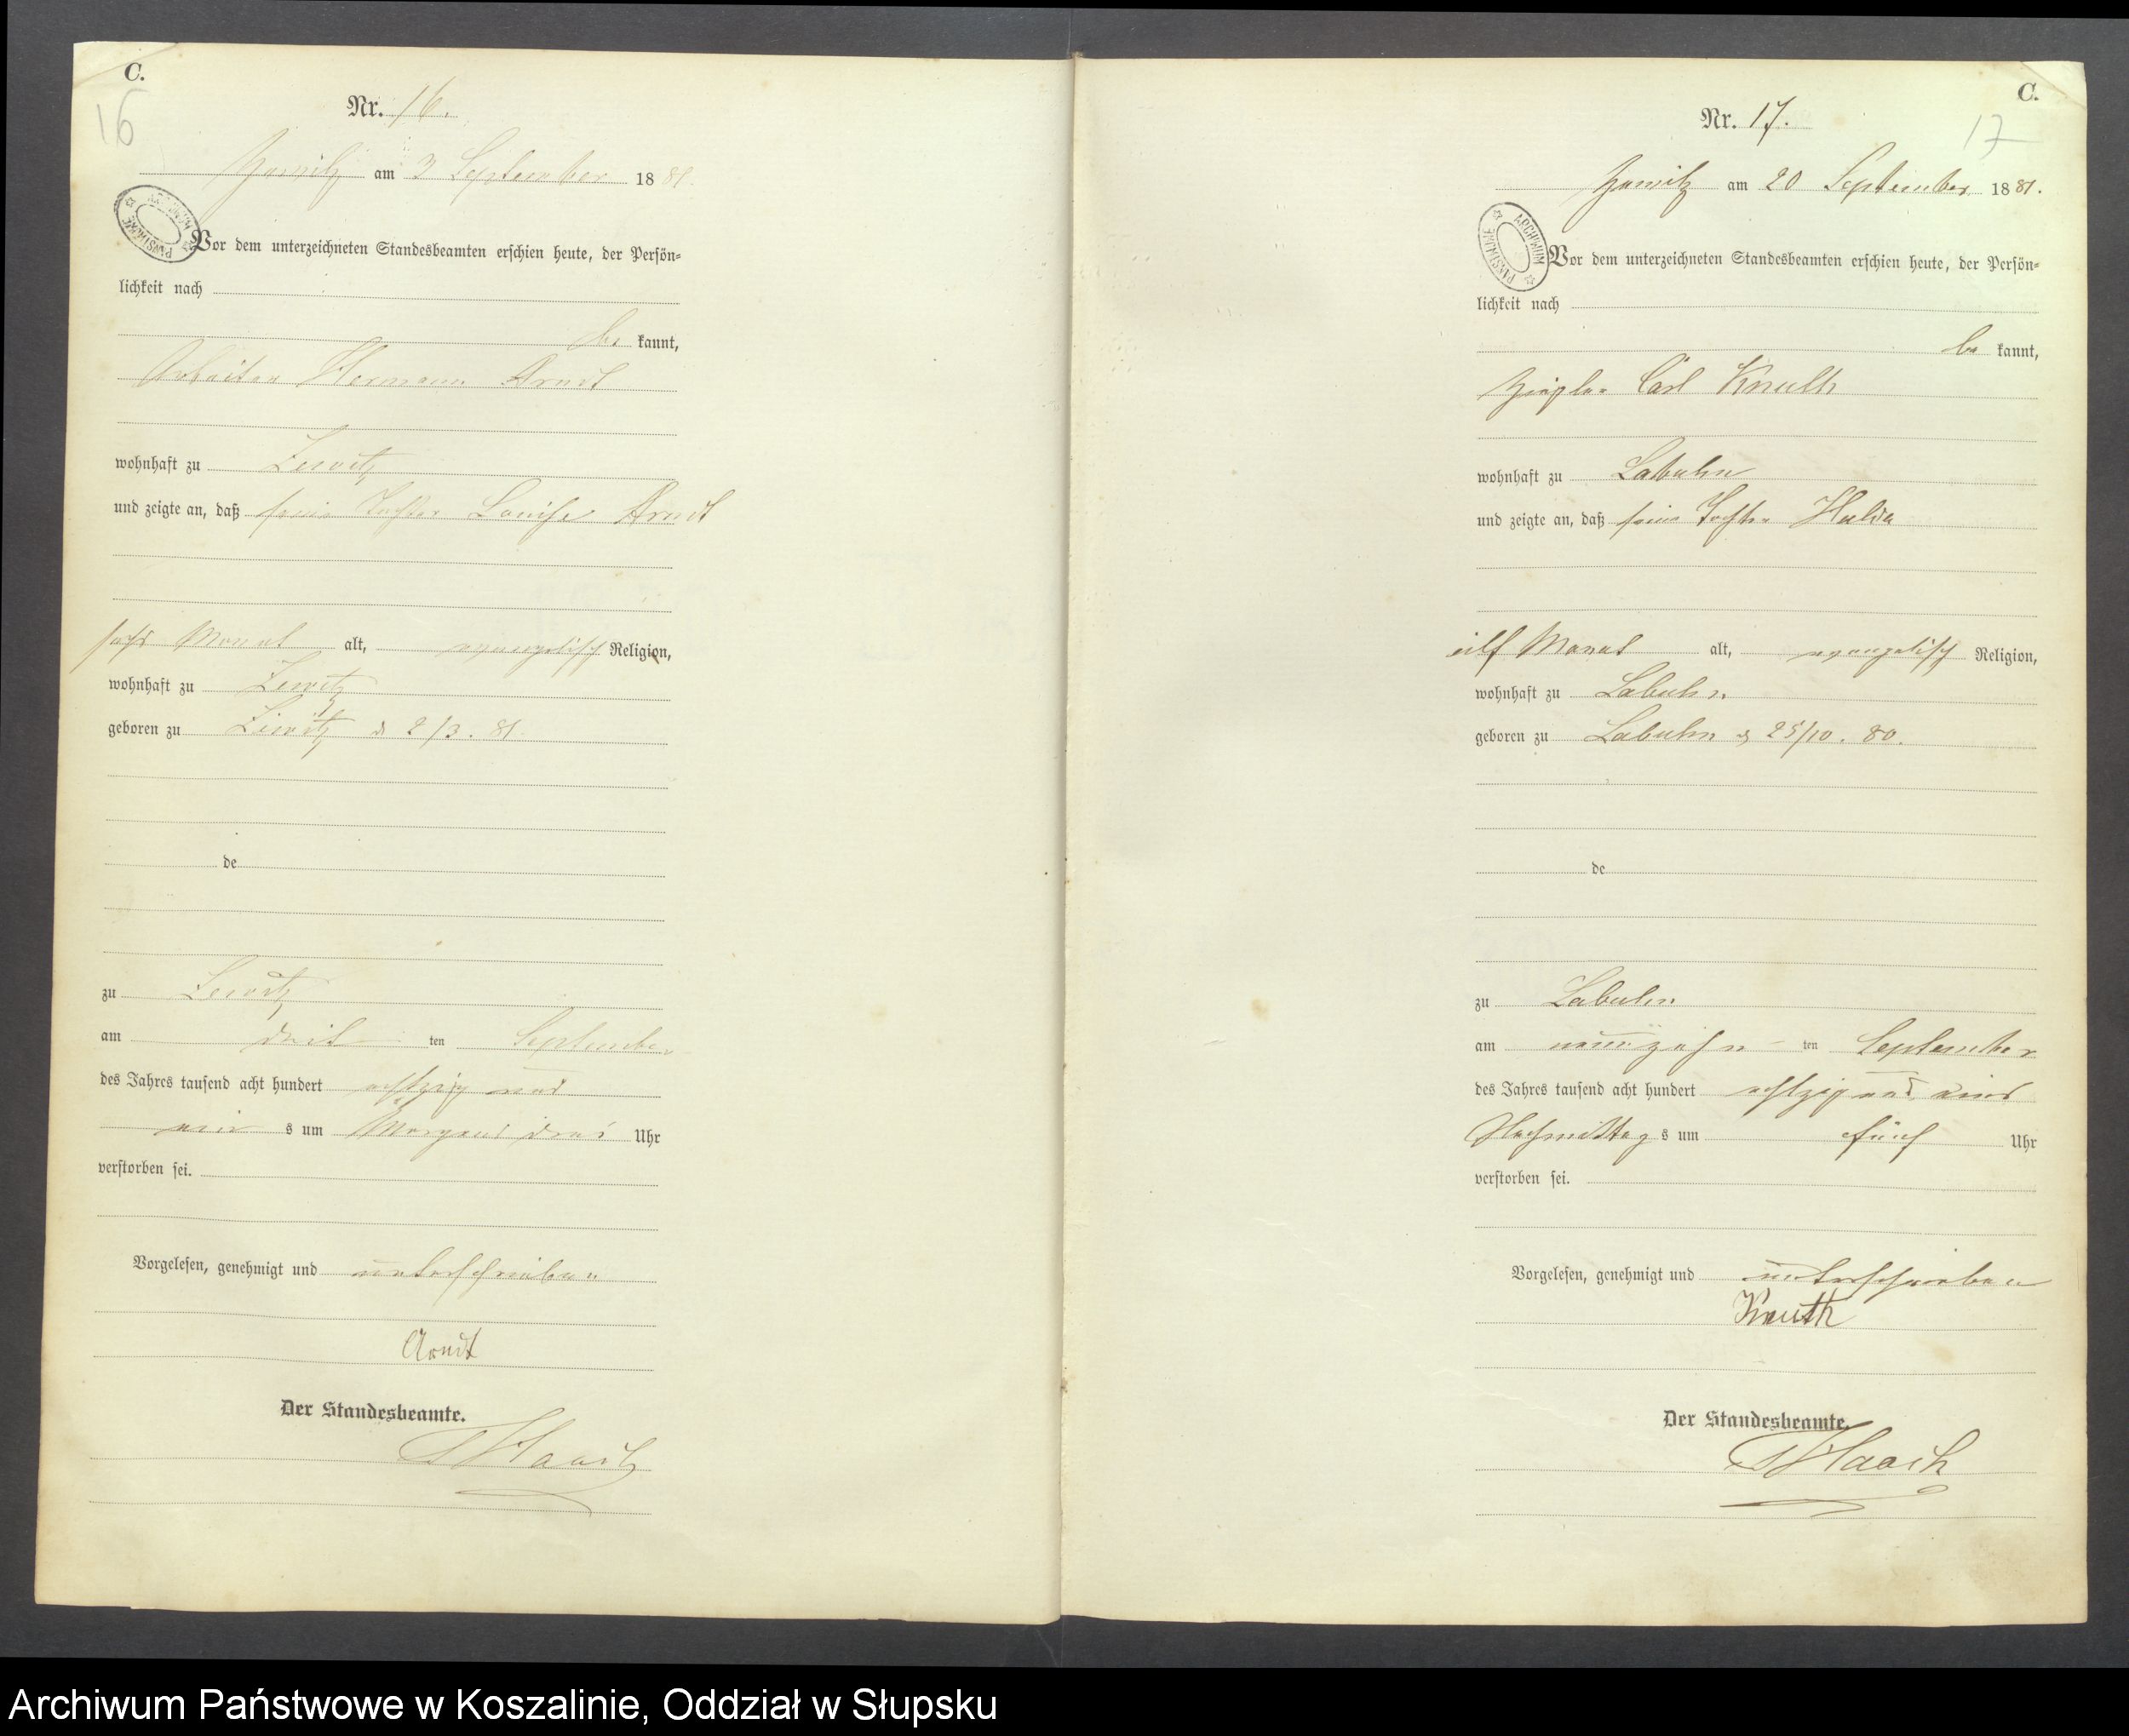 C.
16
Nr. 16.
am 3 September 1881.
Vor dem unterzeichneten Standesbeamten erschien heute, der Persön-
lichkeit nach
be kannt,
Arbeiter Hermann Arndt
wohnhaft zu
und zeigte an, daß seine Tochter Louise Arndt
sechs Monat alt, evangelisch Religion,
wohnhaft zu
geboren zu d 2/3. 81.
de
zu
am drit ten September
des Jahres tausend acht hundert achtzig und
ein s um Morgens drei Uhr
verstorben sei.
Vorgelesen, genehmigt und unterschrieben
Arndt
Der Standesbeamte.
C.
17
Nr. 17.
am 20 September 1881.
ARCHIWUM PAŃSTWOWE
Vor dem unterzeichneten Standesbeamten erschien heute, der Persön-
lichkeit nach
be kannt,
Ziegler Carl Knuth
wohnhaft zu Labuhn
und zeigte an, daß seine Tochter Hulda
eilf Monat alt, evangelisch Religion,
wohnhaft zu Labuhn
geboren zu Labuhn d 25/10. 80.
de
zu Labuhn
am neunzehn ten September
des Jahres tausend acht hundert achtzig und eins
Nachmittag s um fünf Uhr
verstorben sei.
Vorgelesen, genehmigt und unterschrieben
Knuth
Der Standesbeamte.
Archiwum Państwowe w Koszalinie, Oddział w Słupsku